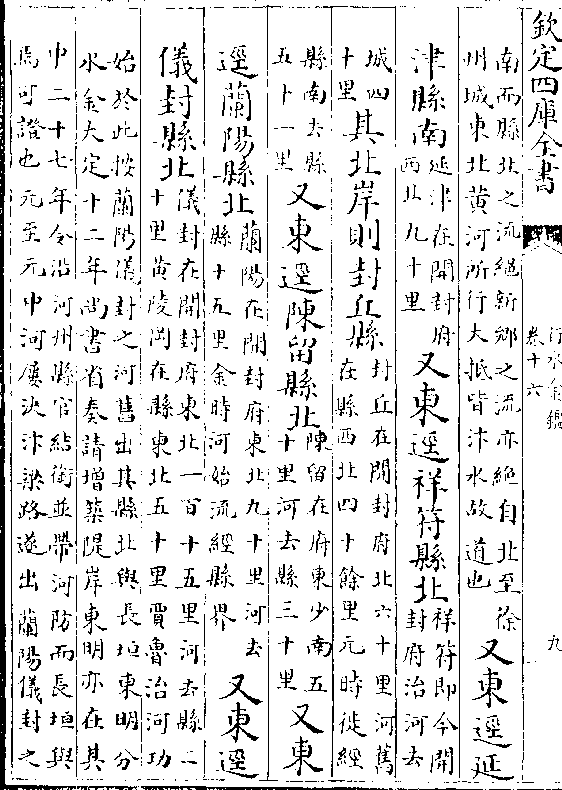 欽定四庫全書
行水金鑑
卷十六
九
南而縣北之流絕新鄉之流亦絕自北至徐
州城東北黃河所行大抵皆汴水故道也
又東逕延
津縣南
延津在開封府
西北九十里
又東逕祥符縣北
祥符即今開
封府治河去
城四
十里
其北岸則封丘縣
封丘在開封府北六十里河舊
在縣西北四十餘里元時徙經
縣南去縣
五十一里
又東逕陳留縣北
陳留在府東少南五
十里河去縣三十里
又東
逕蘭陽縣北
蘭陽在開封府東北九十里河去
縣十五里金時河始流經縣界
又東逕
儀封縣北
儀封在開封府東北一百十五里河去縣二
十里黃陵岡在縣東北五十里賈魯治河功
始於此按蘭陽儀封之河舊出其縣北與長垣東明分
水金大定十二年尚書省奏請增築隄岸東明亦在其
中二十七年令沿河州縣官結銜並帶河防而長垣與
焉可證也元至元中河屢決汴梁路遂出蘭陽儀封之